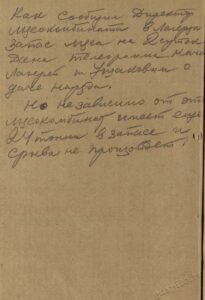 Как сообщил Директор
мясокомбината в Лагерн
запас мяса на 2 суток
Дана телеграмма Нача
Лагерей т.
даче наряда.
Но независимо от от
мясокомбинат имеет еще
24 тонны в запасе и
срыва не произойдет!